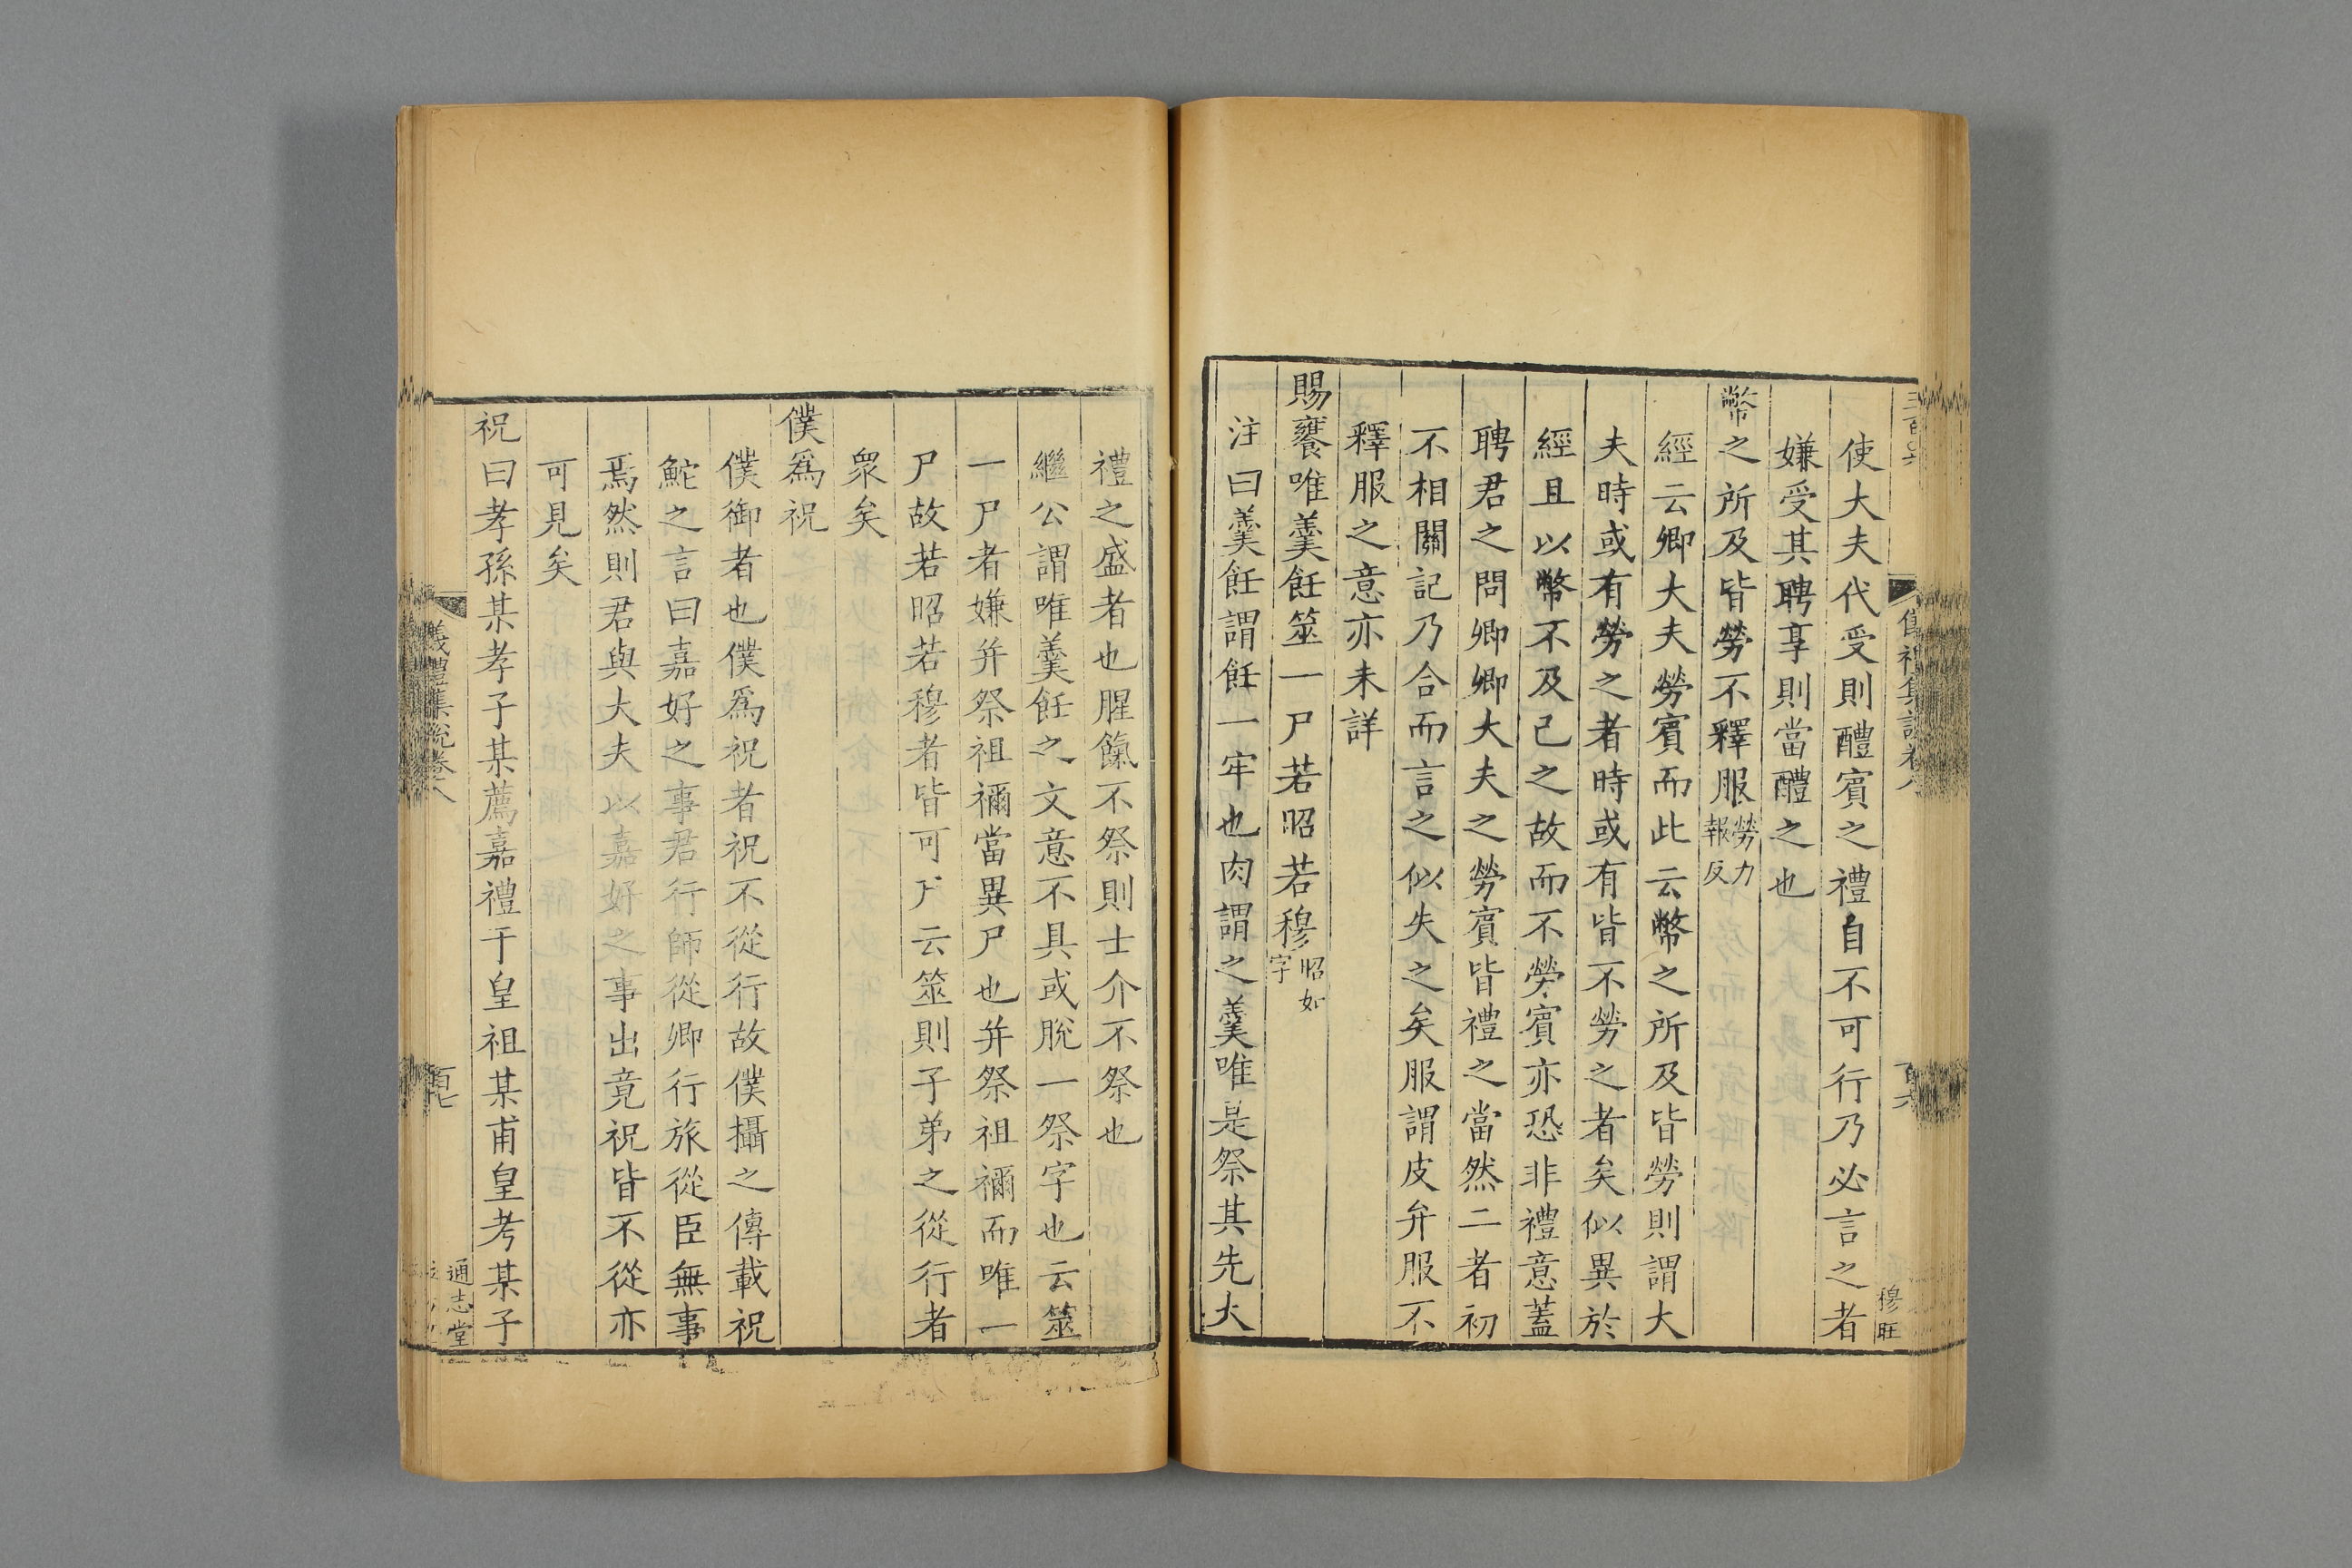 使大夫代受則醴賓之禮自不可行乃必言之者
嫌受其聘享則當醴之也
幣之所及皆勞不釋服勞力報反
經云卿大夫勞賓而此云幣之所及皆勞則謂大
夫時或有勞之者時或有皆不勞之者矣似異於
經且以幣不及已之故而不勞賓亦恐非禮意蓋
聘君之問卿卿大夫之勞賓皆禮之當然二者初
不相關記乃合而言之似失之矣服謂皮弁服不
釋服之意亦未詳
賜饔唯羹飪筮一尸若昭若穆昭如字
注曰羹飪謂飪一牢也肉謂之羹唯是祭其先大
禮之盛者也腥餼不祭則士介不祭也
繼公謂唯羹飪之文意不具或脫一祭字也云筮
一尸者嫌并祭祖禰當異尸也并祭祖禰而唯一
尸故若昭若穆者皆可尸云筮則子弟之從行者
衆矣
僕爲祝
僕御者也僕爲祝者祝不從行故僕攝之傳載祝
鮀之言曰嘉好之事君行師從卿行旅從臣無事
焉然則君與大夫以嘉好之事出竟祝皆不從亦
可見矣
祝曰孝孫某孝子某薦嘉禮于皇祖某甫皇考某子
儀禮集說卷八
百七
通志堂
穆旺